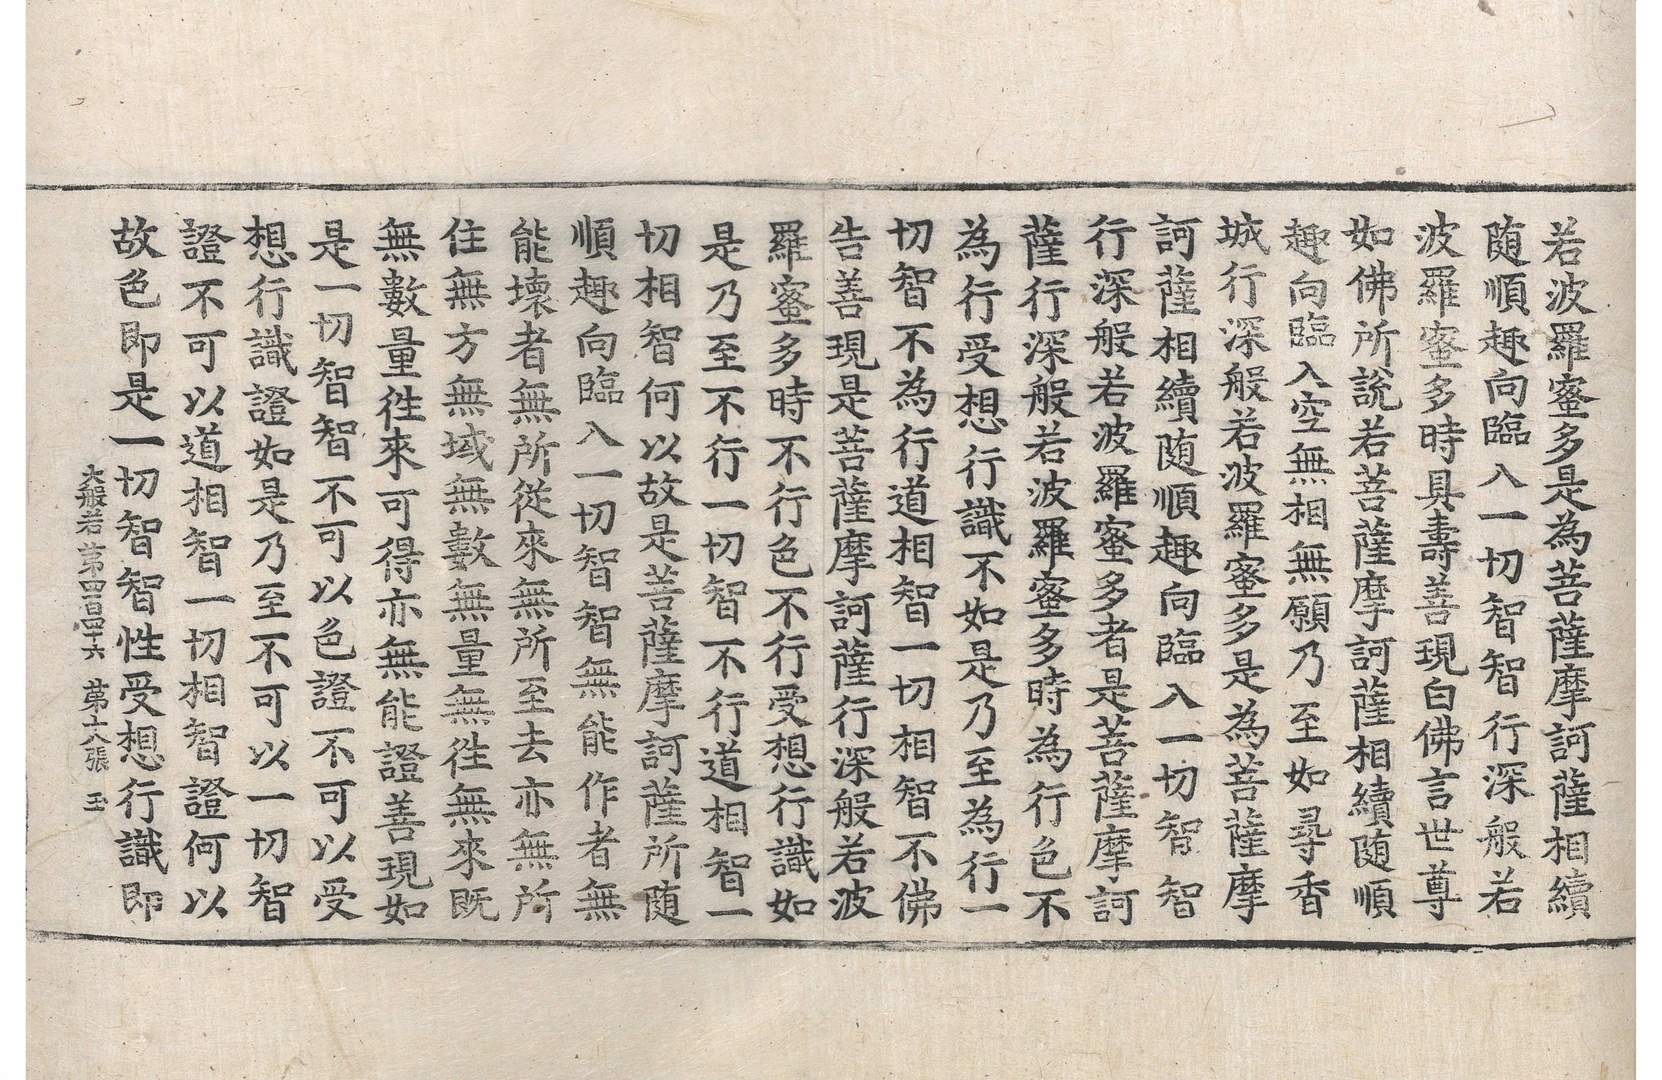 若波羅蜜多是為菩薩摩訶薩相續
随順趣向臨入一切智智行深般若
波羅蜜多時具壽善現白佛言世尊
如佛所說若菩薩摩訶薩相續随順
趣向臨入空無相無願乃至如尋香
城行深般若波羅蜜多是為菩薩摩
訶薩相續随順趣向臨入一切智智
行深般若波羅蜜多者是菩薩摩訶
薩行深般若波羅蜜多時為行色不
為行受想行識不如是乃至為行一
切智不為行道相智一切相智不佛
告善現是菩薩摩訶薩行深般若波
羅蜜多時不行色不行受想行識如
是乃至不行一切智不行道相智一
切相智何以故是菩薩摩訶薩所随
順趣向臨入一切智智無能作者無
能壞者無所從來無所至去亦無所
住無方無域無數無量無徃無來既
無數量徃來可得亦無能證善現如
是一切智智不可以色證不可以受
想行識證如是乃至不可以一切智
證不可以道相智一切相智證何以
故色即是一切智智性受想行識即
大般若第四百四十六 第十八張 玉